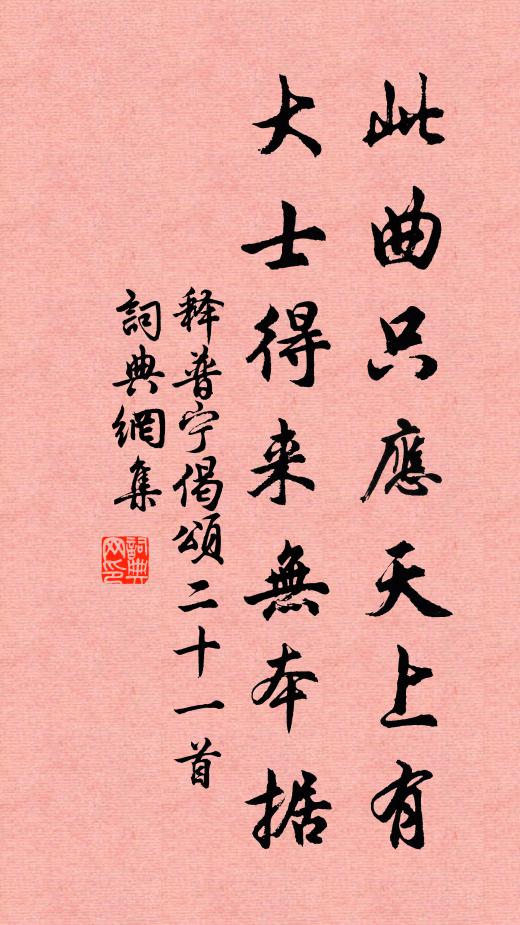 此曲只應天上有
大士得来無本据
释普宁偈頌二十一首
詞典網集
詞典网印